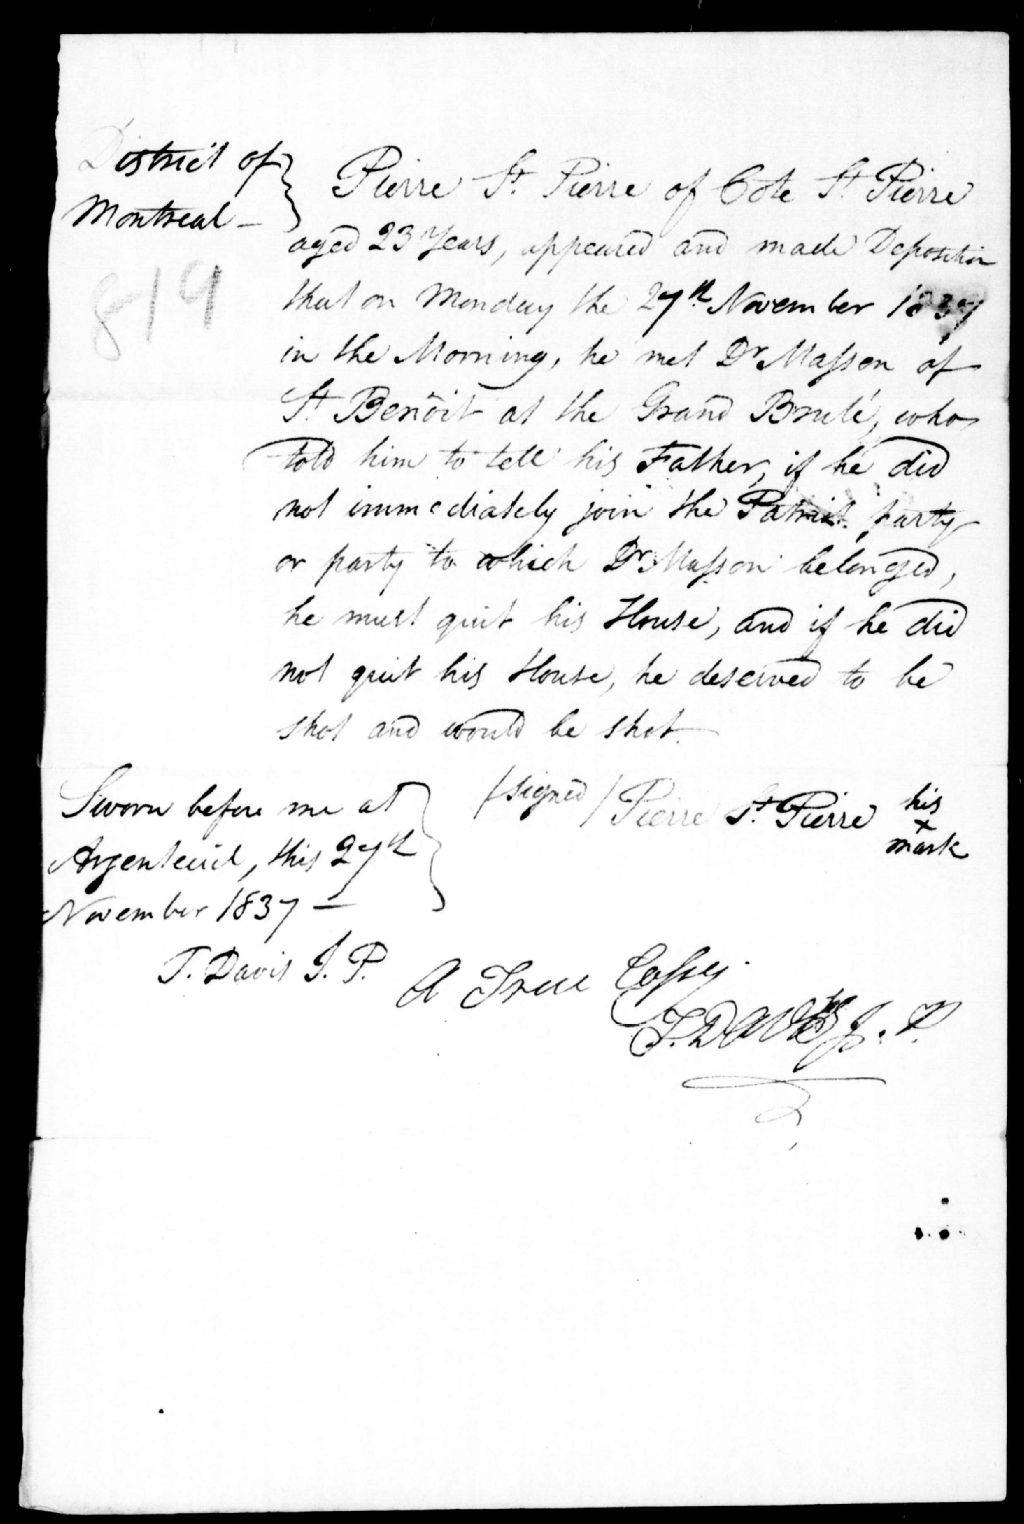 District of
Montreal —
819
Pierre St. Pierre of Cote St. Pierre
aged 23 Years, appeared and made Deposition
that on Monday the 27th November 1837
in the Morning, he met Dr Masson of
St Benôit at the Grand Brulé, who
told him to tell his Father, if he did
not immediately join the Patriot party
or party to which Dr Masson belonged,
he must quit his House, and if he did
not quit his House, he deserved to be
shot and would be shot.
(signed) Pierre St. Pierre his
x
mark
Sworn before me at
Argenteuil, this 27th
November 1837 —
T. Davis J. P.
A True Copy.
T. Davis J. P.